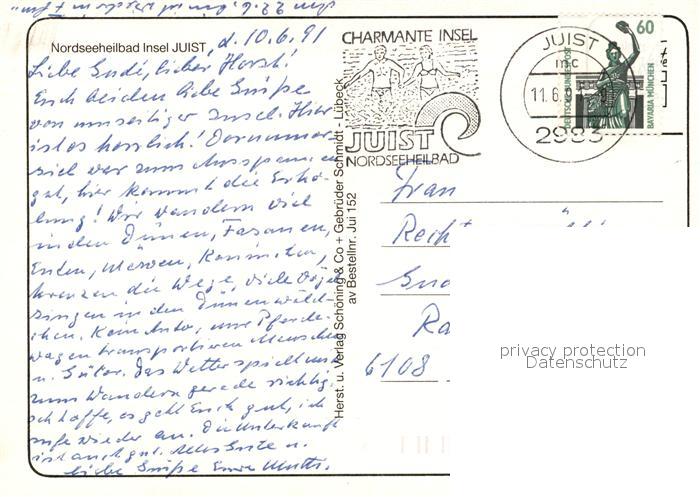 Nordseeheilbad Insel JUIST, d. 10.6.91
Liebe Gudi, lieber Horst!
Euch beiden liebe Grüße
von unseriger Insel. Hier
ist es herrlich!
sich war zum Ausspannen
gut, hier kommt die Erho-
lung! Wir wandern viel
in den Dünen, Fasanen,
Enten, Möwen, Kaninchen,
kreuzen die Wege, viele Vögel
singen in den Dünenwäld-
chen. Kein Auto, nur Pferde-
wagen transportieren Menschen
u. Güter. Das Wetter spielt mit
zum Wandern gerade richtig.
Ich hoffe, es geht Euch gut, ich
rufe wieder an. Die Unterkunft
ist auch gut. Alles Gute u.
liebe Grüße Eure Mutti.
Herst. u. Verlag Schöning & Co + Gebrüder Schmidt · Lübeck
av Bestellnr. Jui 152
CHARMANTE INSEL
JUIST
NORDSEEHEILBAD
JUIST
mc
11.6.
2983
60
DEUTSCHE BUNDESPOST
BAVARIA MÜNCHEN
Frau
6108
privacy protection
Datenschutz